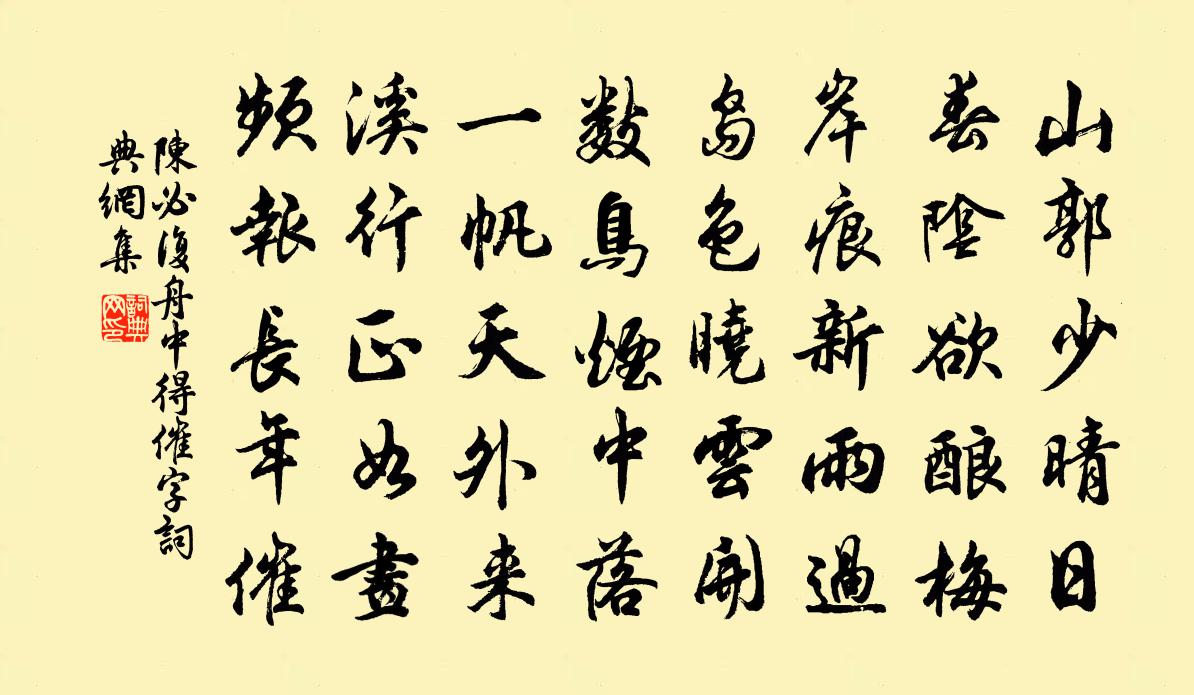 山郭少晴日
春陰欲酿梅
岸痕新雨過
島色曉雲開
數鳥煙中落
一帆天外来
溪行正如畫
頻報長年催
陳必復舟中得催字詞
典網集
詞典
网印